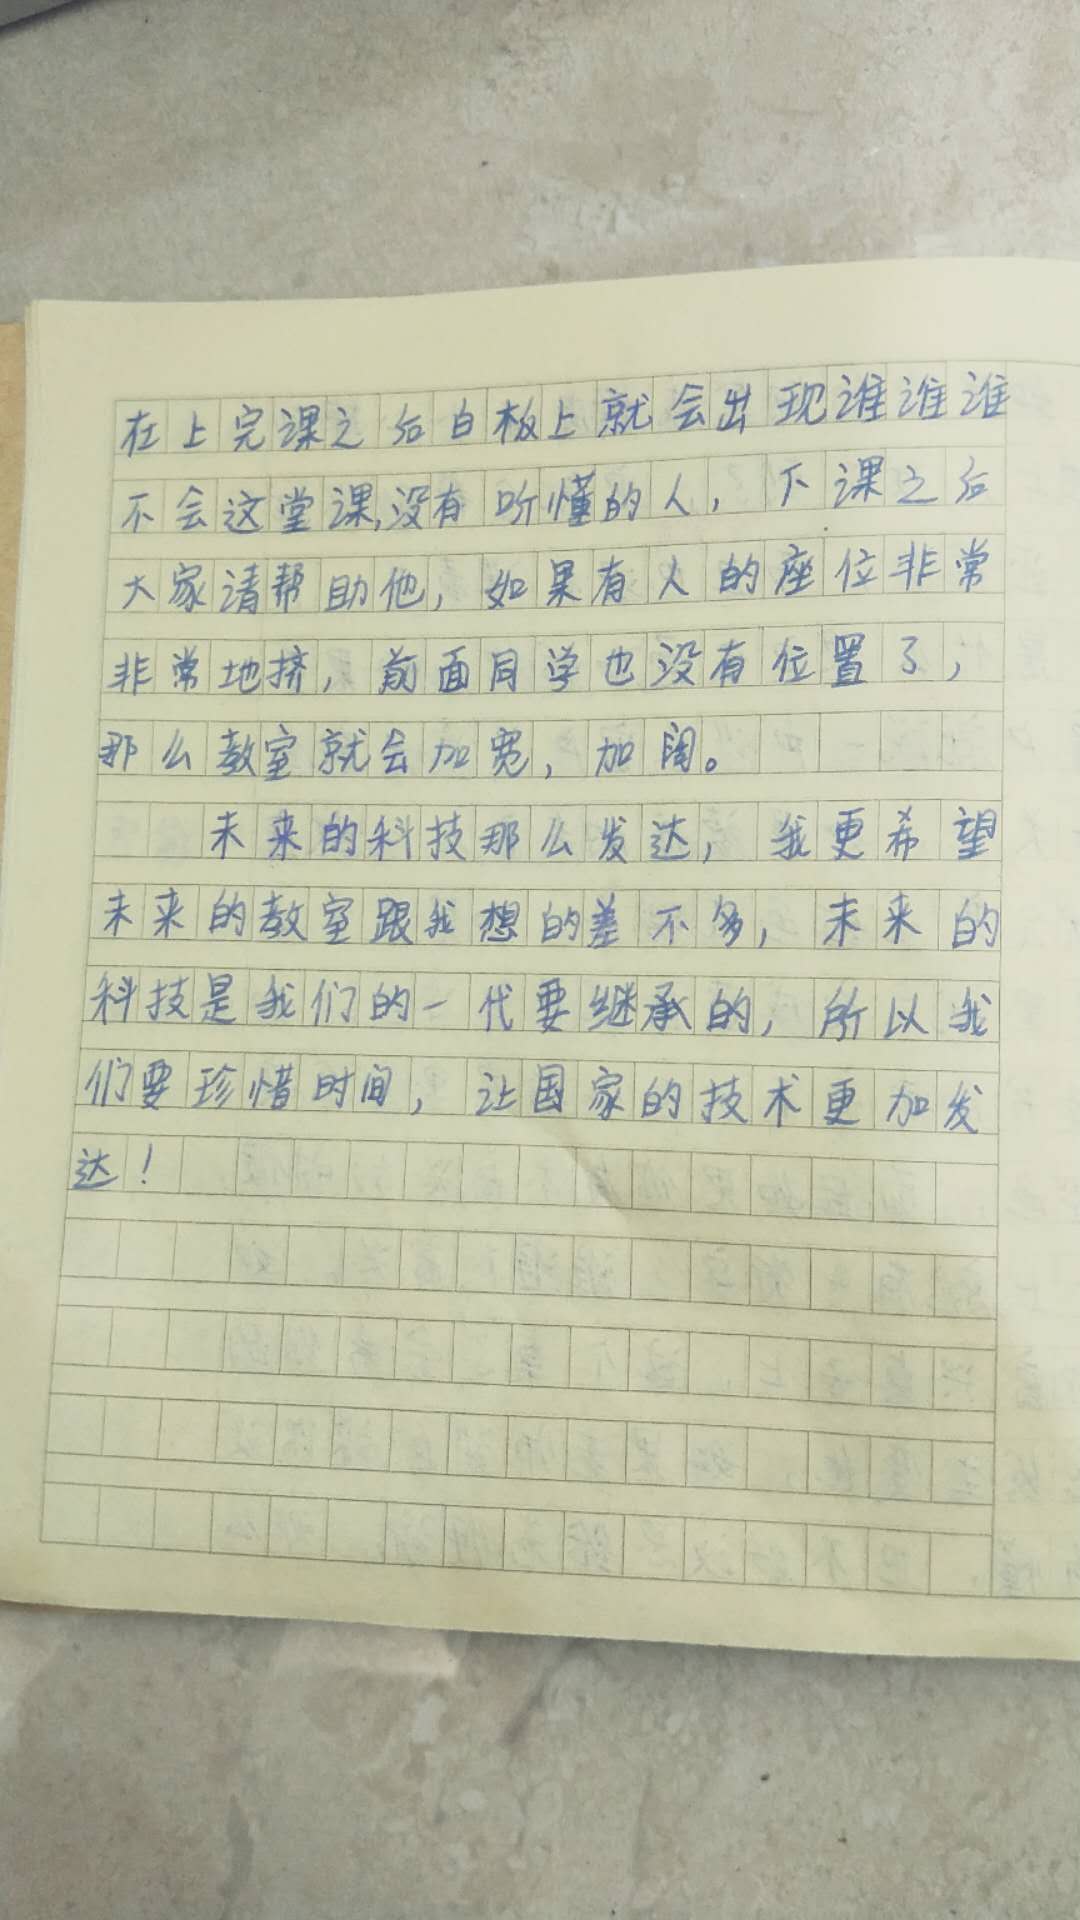 在上完课之后白板上就会出现谁谁谁
不会这堂课,没有听懂的人，下课之后
大家请帮助他，如果有人的座位非常
非常地挤，前面同学也没有位置了，
那么教室就会加宽，加阔。
未来的科技那么发达，我更希望
未来的教室跟我想的差不多，未来的
科技是我们的一代要继承的，所以我
们要珍惜时间，让国家的技术更加发
达！